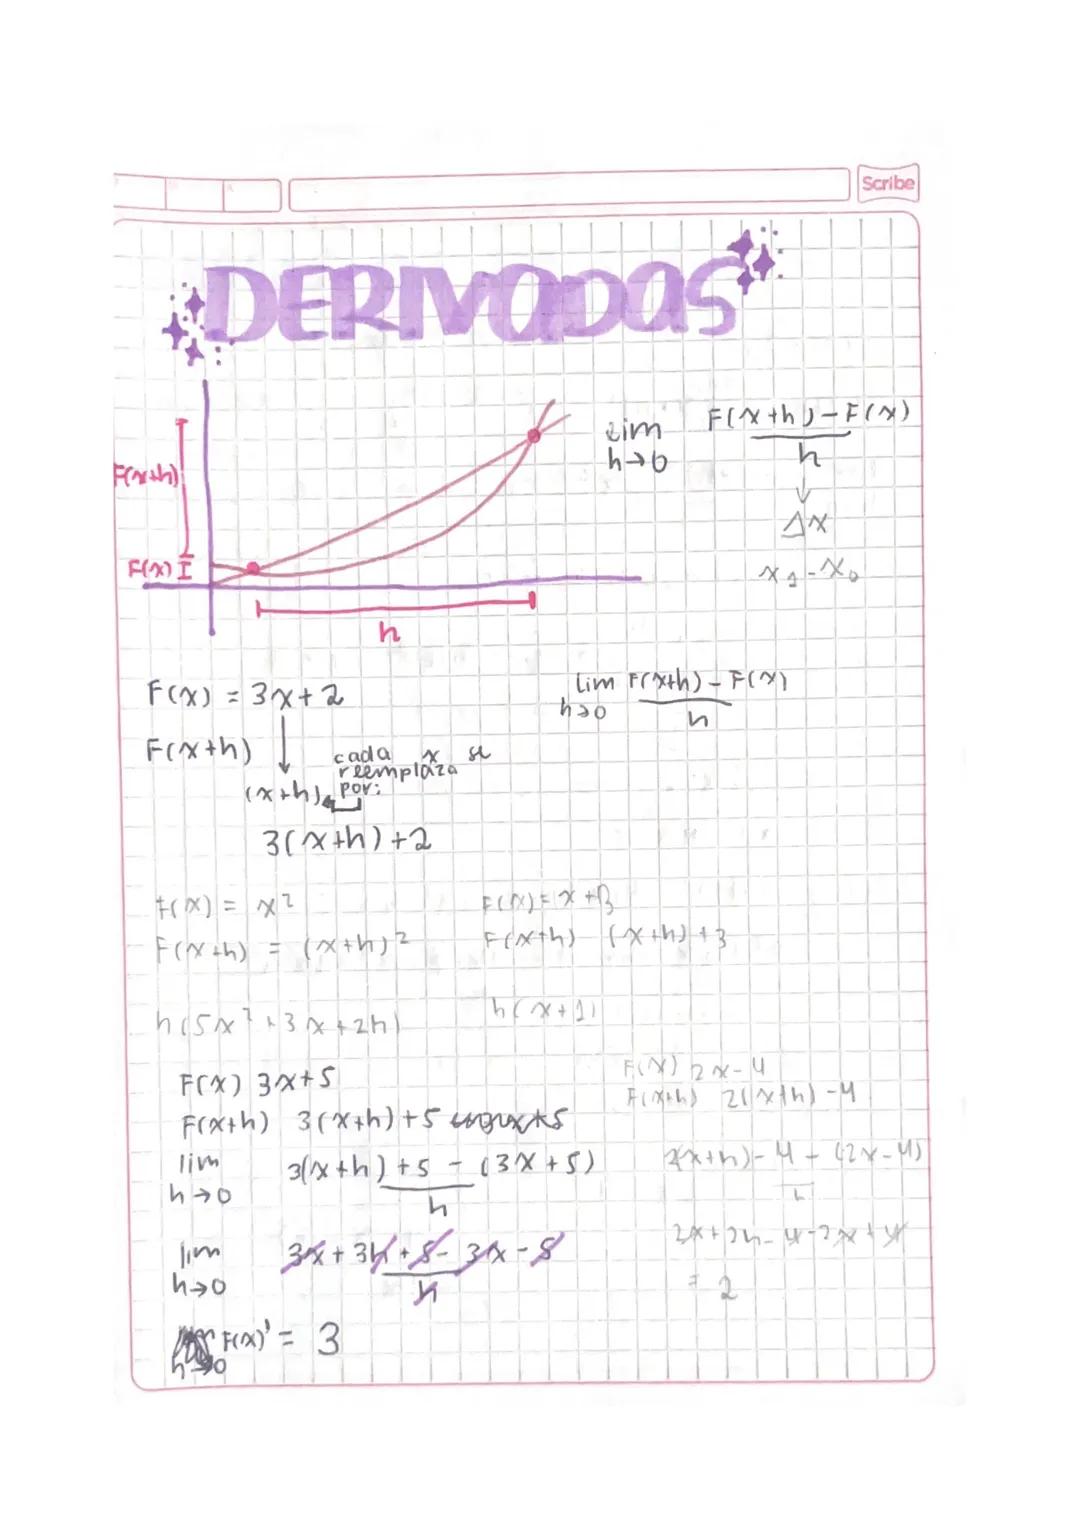 Scribe
DERIVADAS
F(x+h)
F(x)
h
Lim h→0 F(x+h)-F(x)
h
↓
Δx
x1-x0
F(x) = 3x+2
F(x+h)
cada x se
reemplaza
(x+h) por:
3(x+h)+2
Lim h→0 F(x+h)-F(x)
h
F(x) = x²
F(x+h) = (x+h)²
F(x)= x+3
F(x+h) (x+h)+3
h(5x²+3x+2h)
h(x+1)
F(x) 3x+5
F(x+h) 3(x+h)+5
lim h→0 3(x+h)+5-(3x+5)
h
lim h→0 3x+3h+5-3x-5
h
F(x)' = 3
F(x) 2x-4
F(x+h) 2(x+h)-4
2(x+h)-4-(2x-4)
h
2x+2h-4-2x+4
= 2